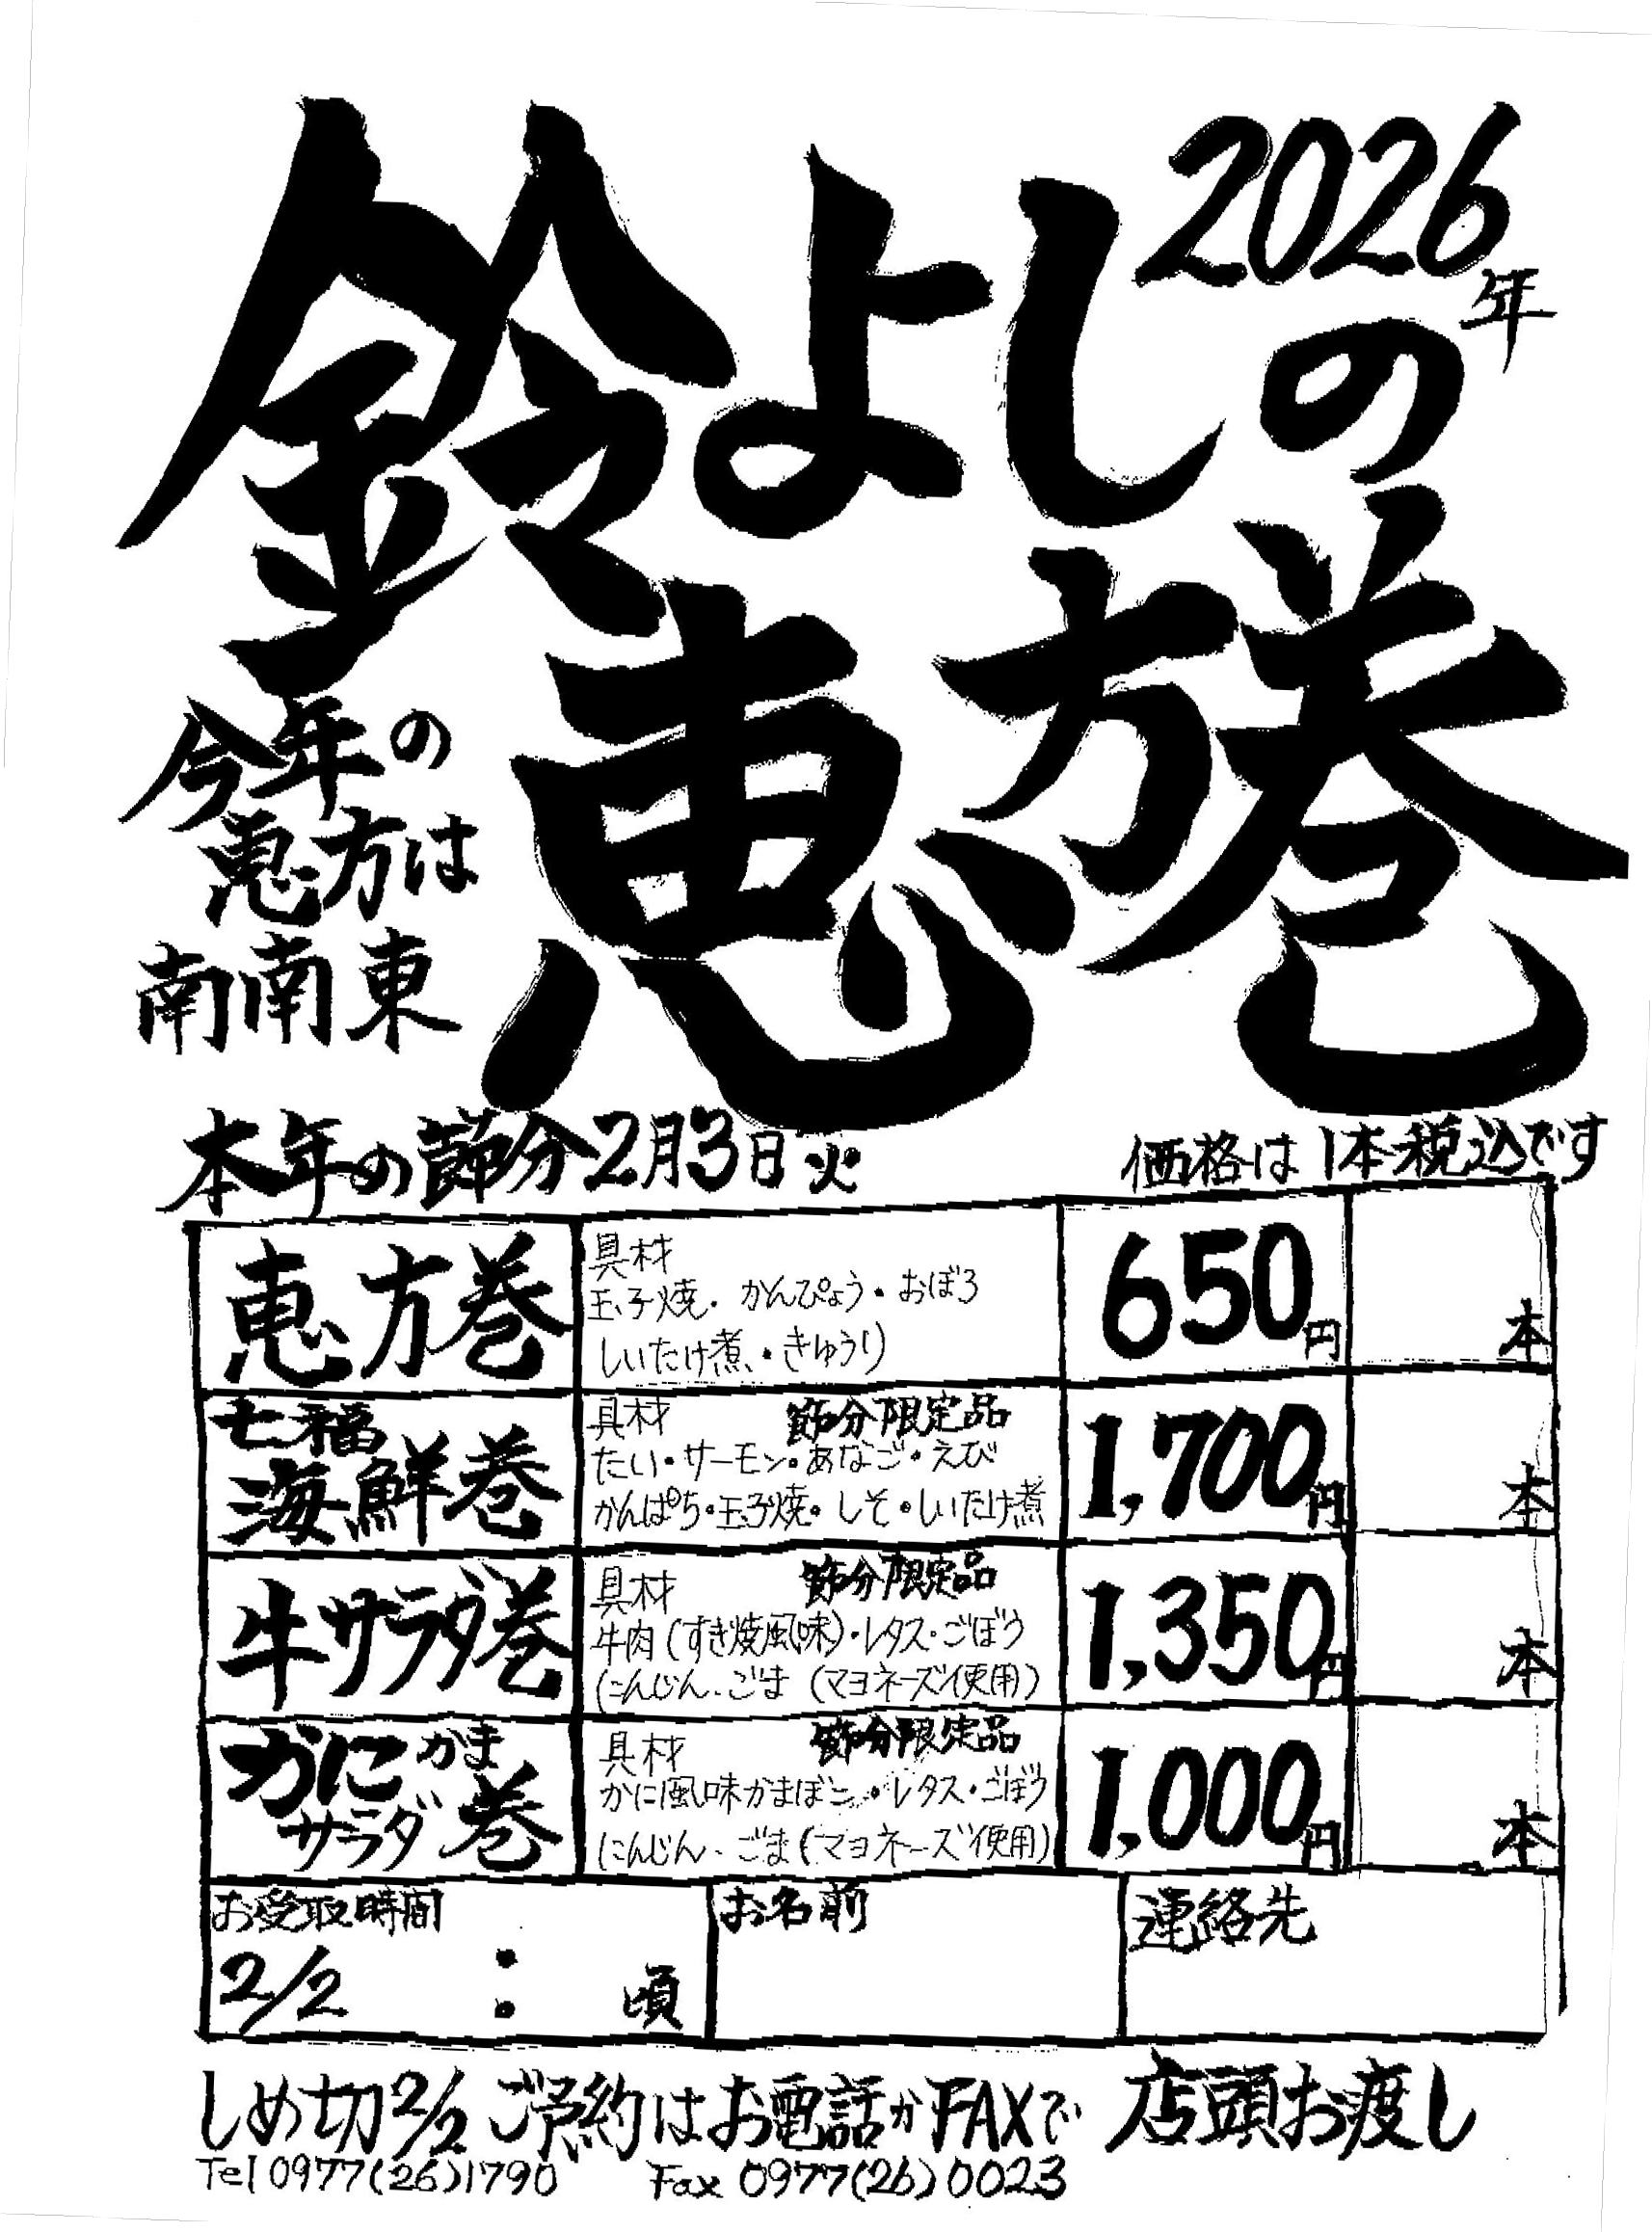 2026年
鈴よしの
恵方巻
今年の
恵方は
南南東
本年の節分2月3日火
価格は1本税込です
恵方巻
具材
玉子焼・かんぴょう・おぼろ
しいたけ煮・きゅうり
650円
本
七福
海鮮巻
具材 節分限定品
たい・サーモン・あなご・えび
かんぱち・玉子焼・しそ・しいたけ煮
1,700円
本
牛サラダ巻
具材 節分限定品
牛肉(すき焼風味)・レタス・ごぼう
にんじん・ごま(マヨネーズ使用)
1,350円
本
かにかま
サラダ巻
具材 節分限定品
かに風味かまぼこ・レタス・ごぼう
にんじん・ごま(マヨネーズ使用)
1,000円
本
お受取時間
2/2 : 頃
お名前
連絡先
しめ切2/2 ご予約はお電話かFAXで 店頭お渡し
Tel 0977(26)1790 Fax 0977(26)0023